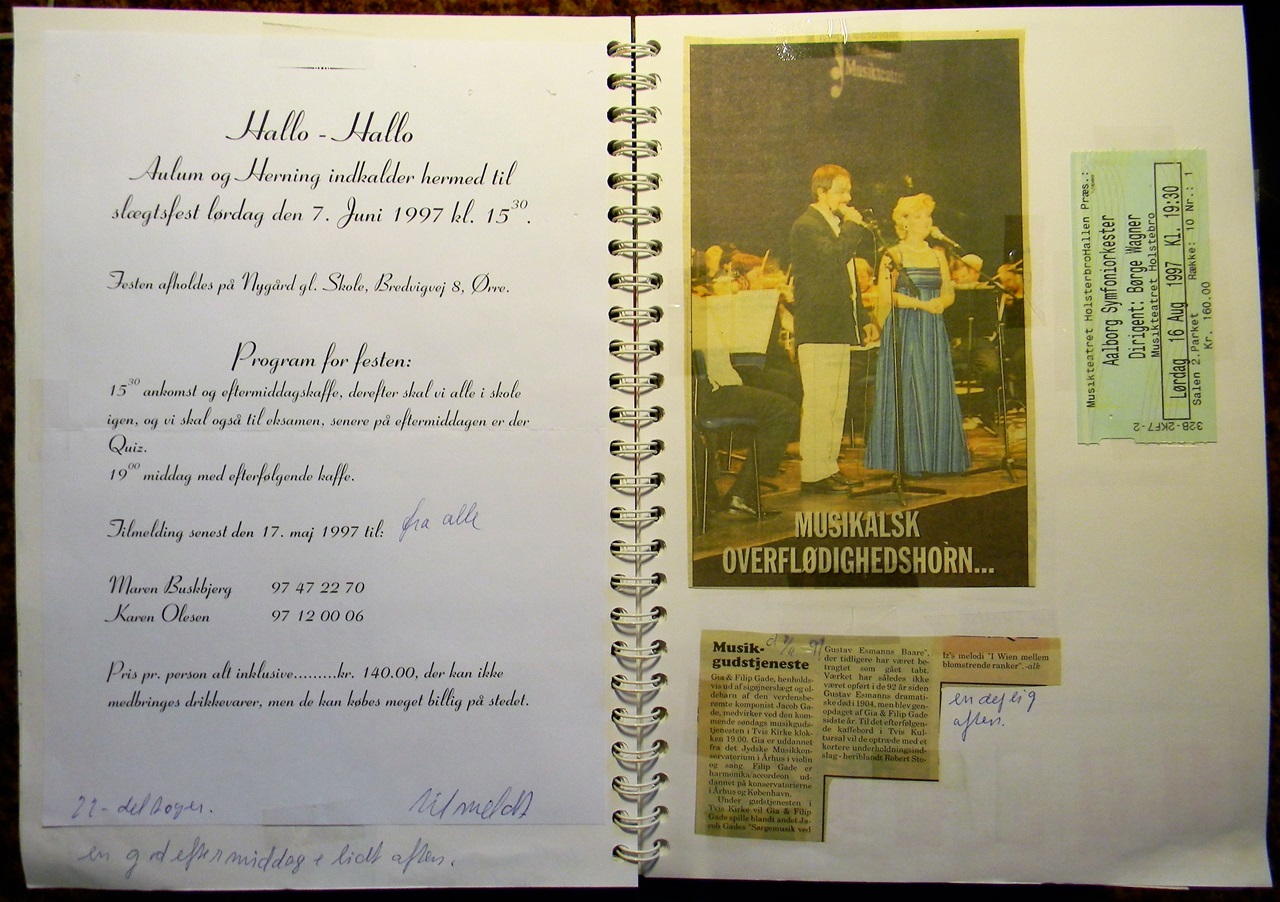 Hallo - Hallo
Aulum og Herning indkalder hermed til
slægtsfest lørdag den 7. Juni 1997 kl. 15³⁰.
Festen afholdes på Nygård gl. Skole, Bredvigvej 8, Ørre.
Program for festen:
15³⁰ ankomst og eftermiddagskaffe, derefter skal vi alle i skole
igen, og vi skal også til eksamen, senere på eftermiddagen er der
Quiz.
19⁰⁰ middag med efterfølgende kaffe.
Tilmelding senest den 17. maj 1997 til: fra alle
Maren Buskbjerg 97 47 22 70
Karen Olesen 97 12 00 06
Pris pr. person alt inklusive.........kr. 140.00, der kan ikke
medbringes drikkevarer, men de kan købes meget billig på stedet.
22 - deltager. tilmeldt
en god eftermiddag e lidt aften.
Musikteatret
MUSIKALSK
OVERFLØDIGHEDSHORN...
Musikteatret HolsterbroHallen Præs.:
Aalborg Symfoniorkester
Dirigent: Børge Wagner
Musikteatret Holstebro
Lørdag 16 Aug 1997 Kl. 19:30
Salen 2.Parket Række: 10 Nr.: 1
Kr. 160.00
32B-2KF7-2
Musik-
gudstjeneste
Gia & Filip Gade, henholds-
vis ud af sigøjnerslægt og ol-
debarn af den verdensbe-
rømte komponist Jacob Ga-
de, medvirker ved den kom-
mende søndags musikguds-
tjenesten i Tvis Kirke klok-
ken 19.00. Gia er uddannet
fra det Jydske Musikkon-
servatorium i Århus i violin
og sang. Filip Gade er
harmonika/accordeon ud-
dannet på konservatorierne
i Århus og København.
Under gudstjenesten i
Tvis Kirke vil Gia & Filip
Gade spille blandt andet Ja-
cob Gades "Sørgemusik ved
Gustav Esmanns Baare",
der tidligere har været be-
tragtet som gået tabt.
Værket har således ikke
været opført i de 92 år siden
Gustav Esmanns dramati-
ske død i 1904, men blev gen-
opdaget af Gia & Filip Gade
sidste år. Til det efterfølgen-
de kaffebord i Tvis Kul-
tursal vil de optræde med et
kortere underholdningsind-
slag - heriblandt Robert Sto-
lz's melodi "I Wien mellem
blomstrende ranker". -alk
en dejlig
aften.